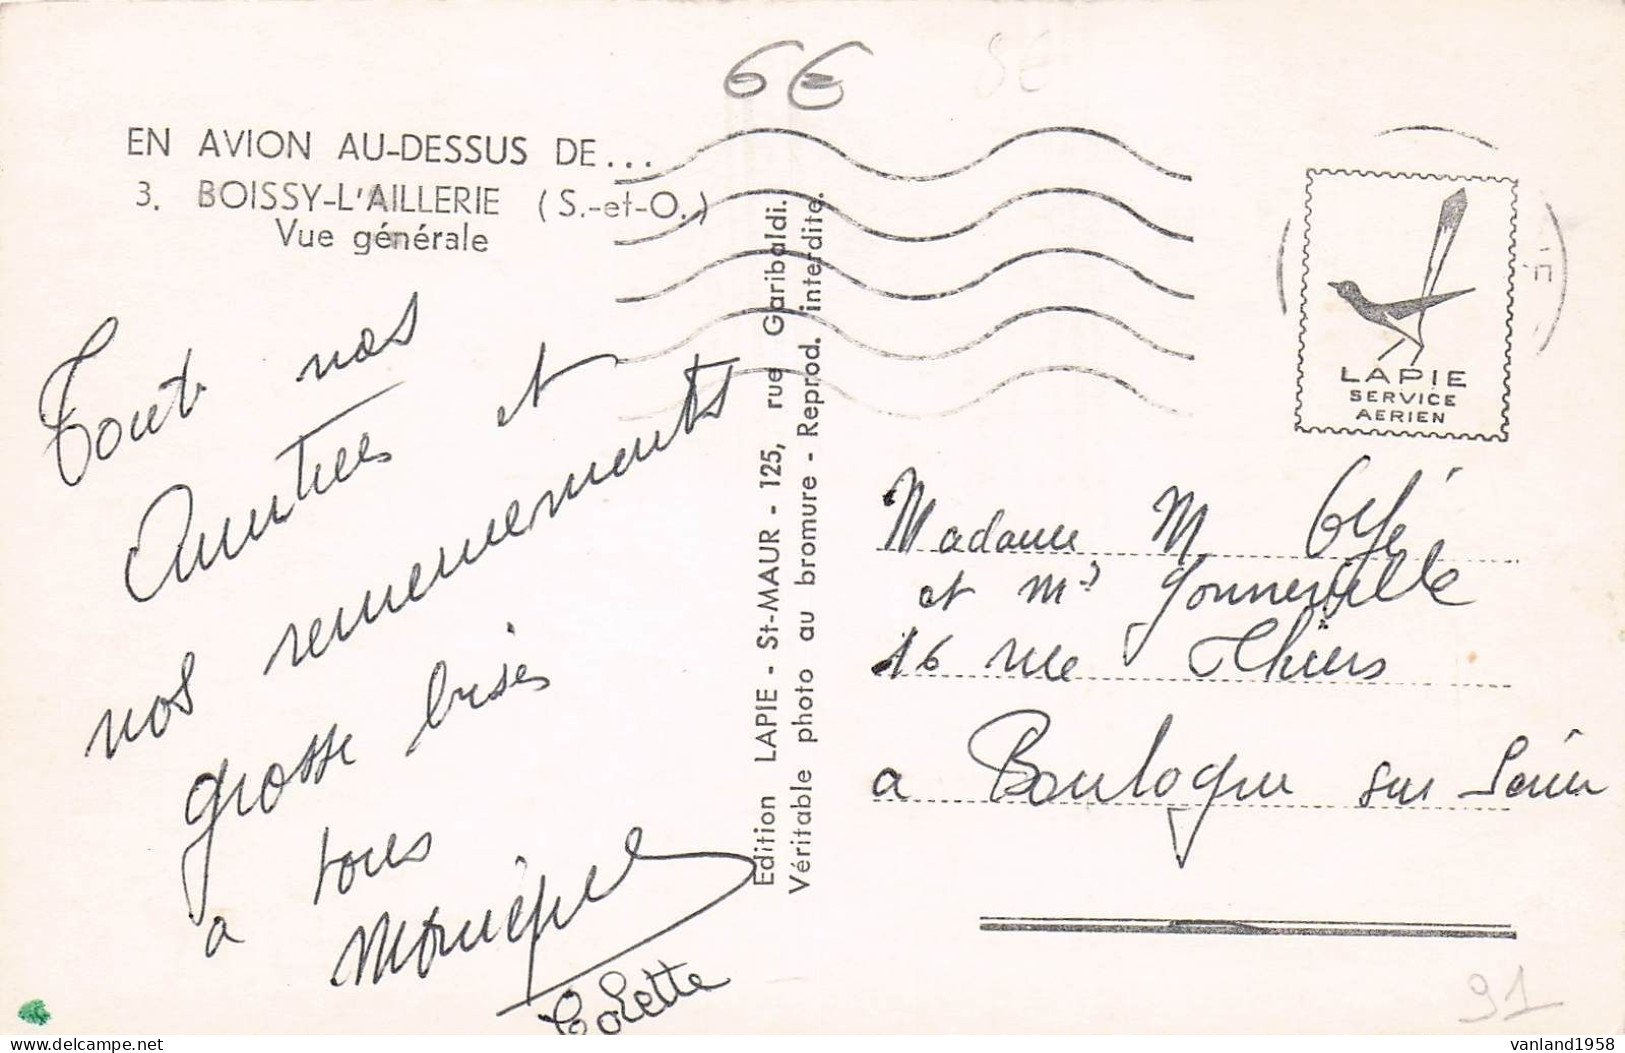 6€
8€
EN AVION AU-DESSUS DE...
3. BOISSY-L'AILLERIE (S.-et-O.)
Vue générale
Tout nos
Amitiées et
nos remenements
grosse bises
a tous
Monique
Colette
Edition LAPIE - St-MAUR - 125, rue Garibaldi.
Véritable photo au bromure - Reprod. interdite.
LAPIE
SERVICE
AERIEN
Madame M
et Mr Gonneville
16 rue Thiers
a Boulogne sur Seine
91
vanland1958